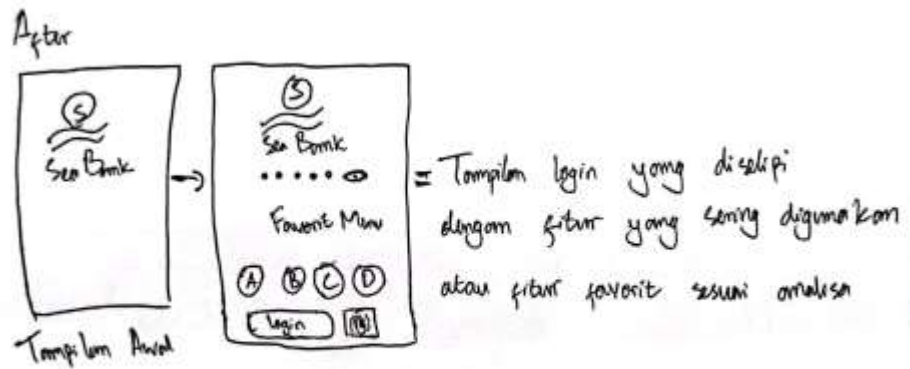 After
S
Sea Bank
Tampilan Awal
S
Sea Bank
Favorit Menu
A B C D
Login
= Tampilan login yang diselipi
dengan fitur yang sering digunakan
atau fitur favorit sesuai analisa